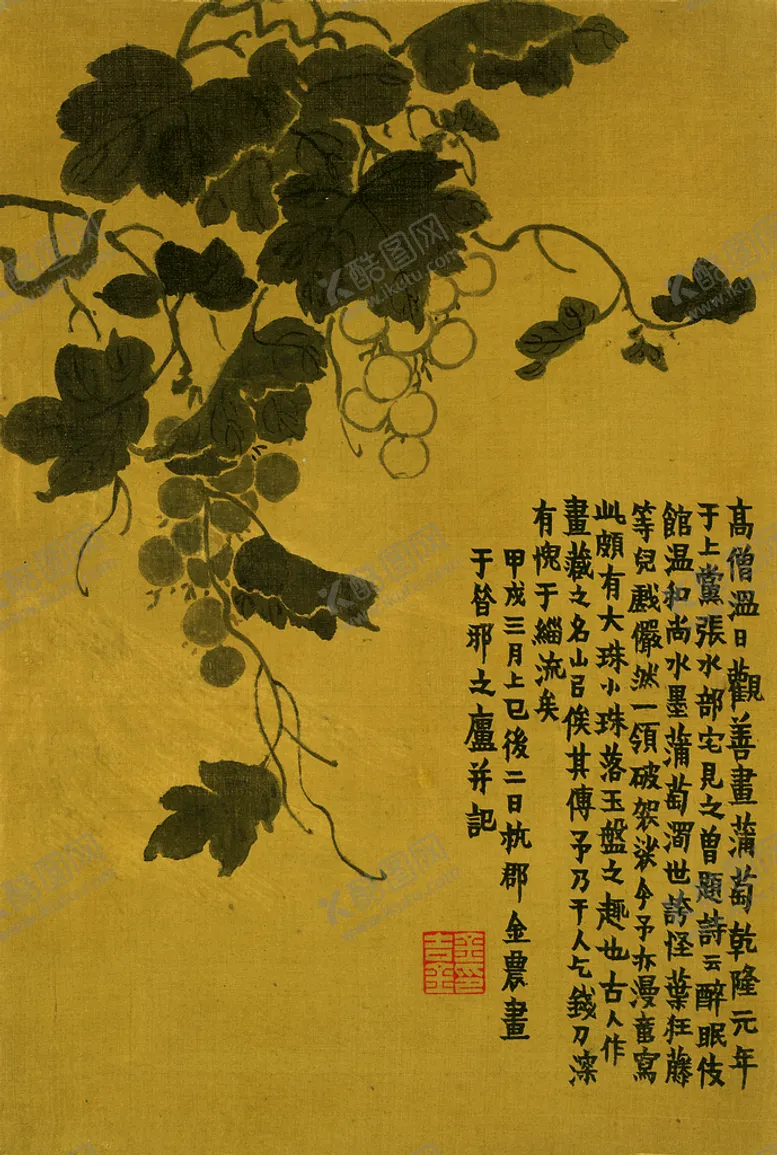 高僧溫日觀善畫蒲萄乾隆元年
于上黨張水部宅見之曾題詩云醉眠伎
館溫和尚水墨蒲萄濁世誇怪葉狂藤
等兒戲儼然一領破袈裟今予亦漫童寫
此頗有大珠小珠落玉盤之趣也古人作
畫藏之名山㠯俟其傳予乃干人乞錢刀深
有愧于緇流矣
甲戌三月上巳後二日杭郡金農畫
于昔邪之廬并記
金吉金印
酷图网
www.ikutu.com